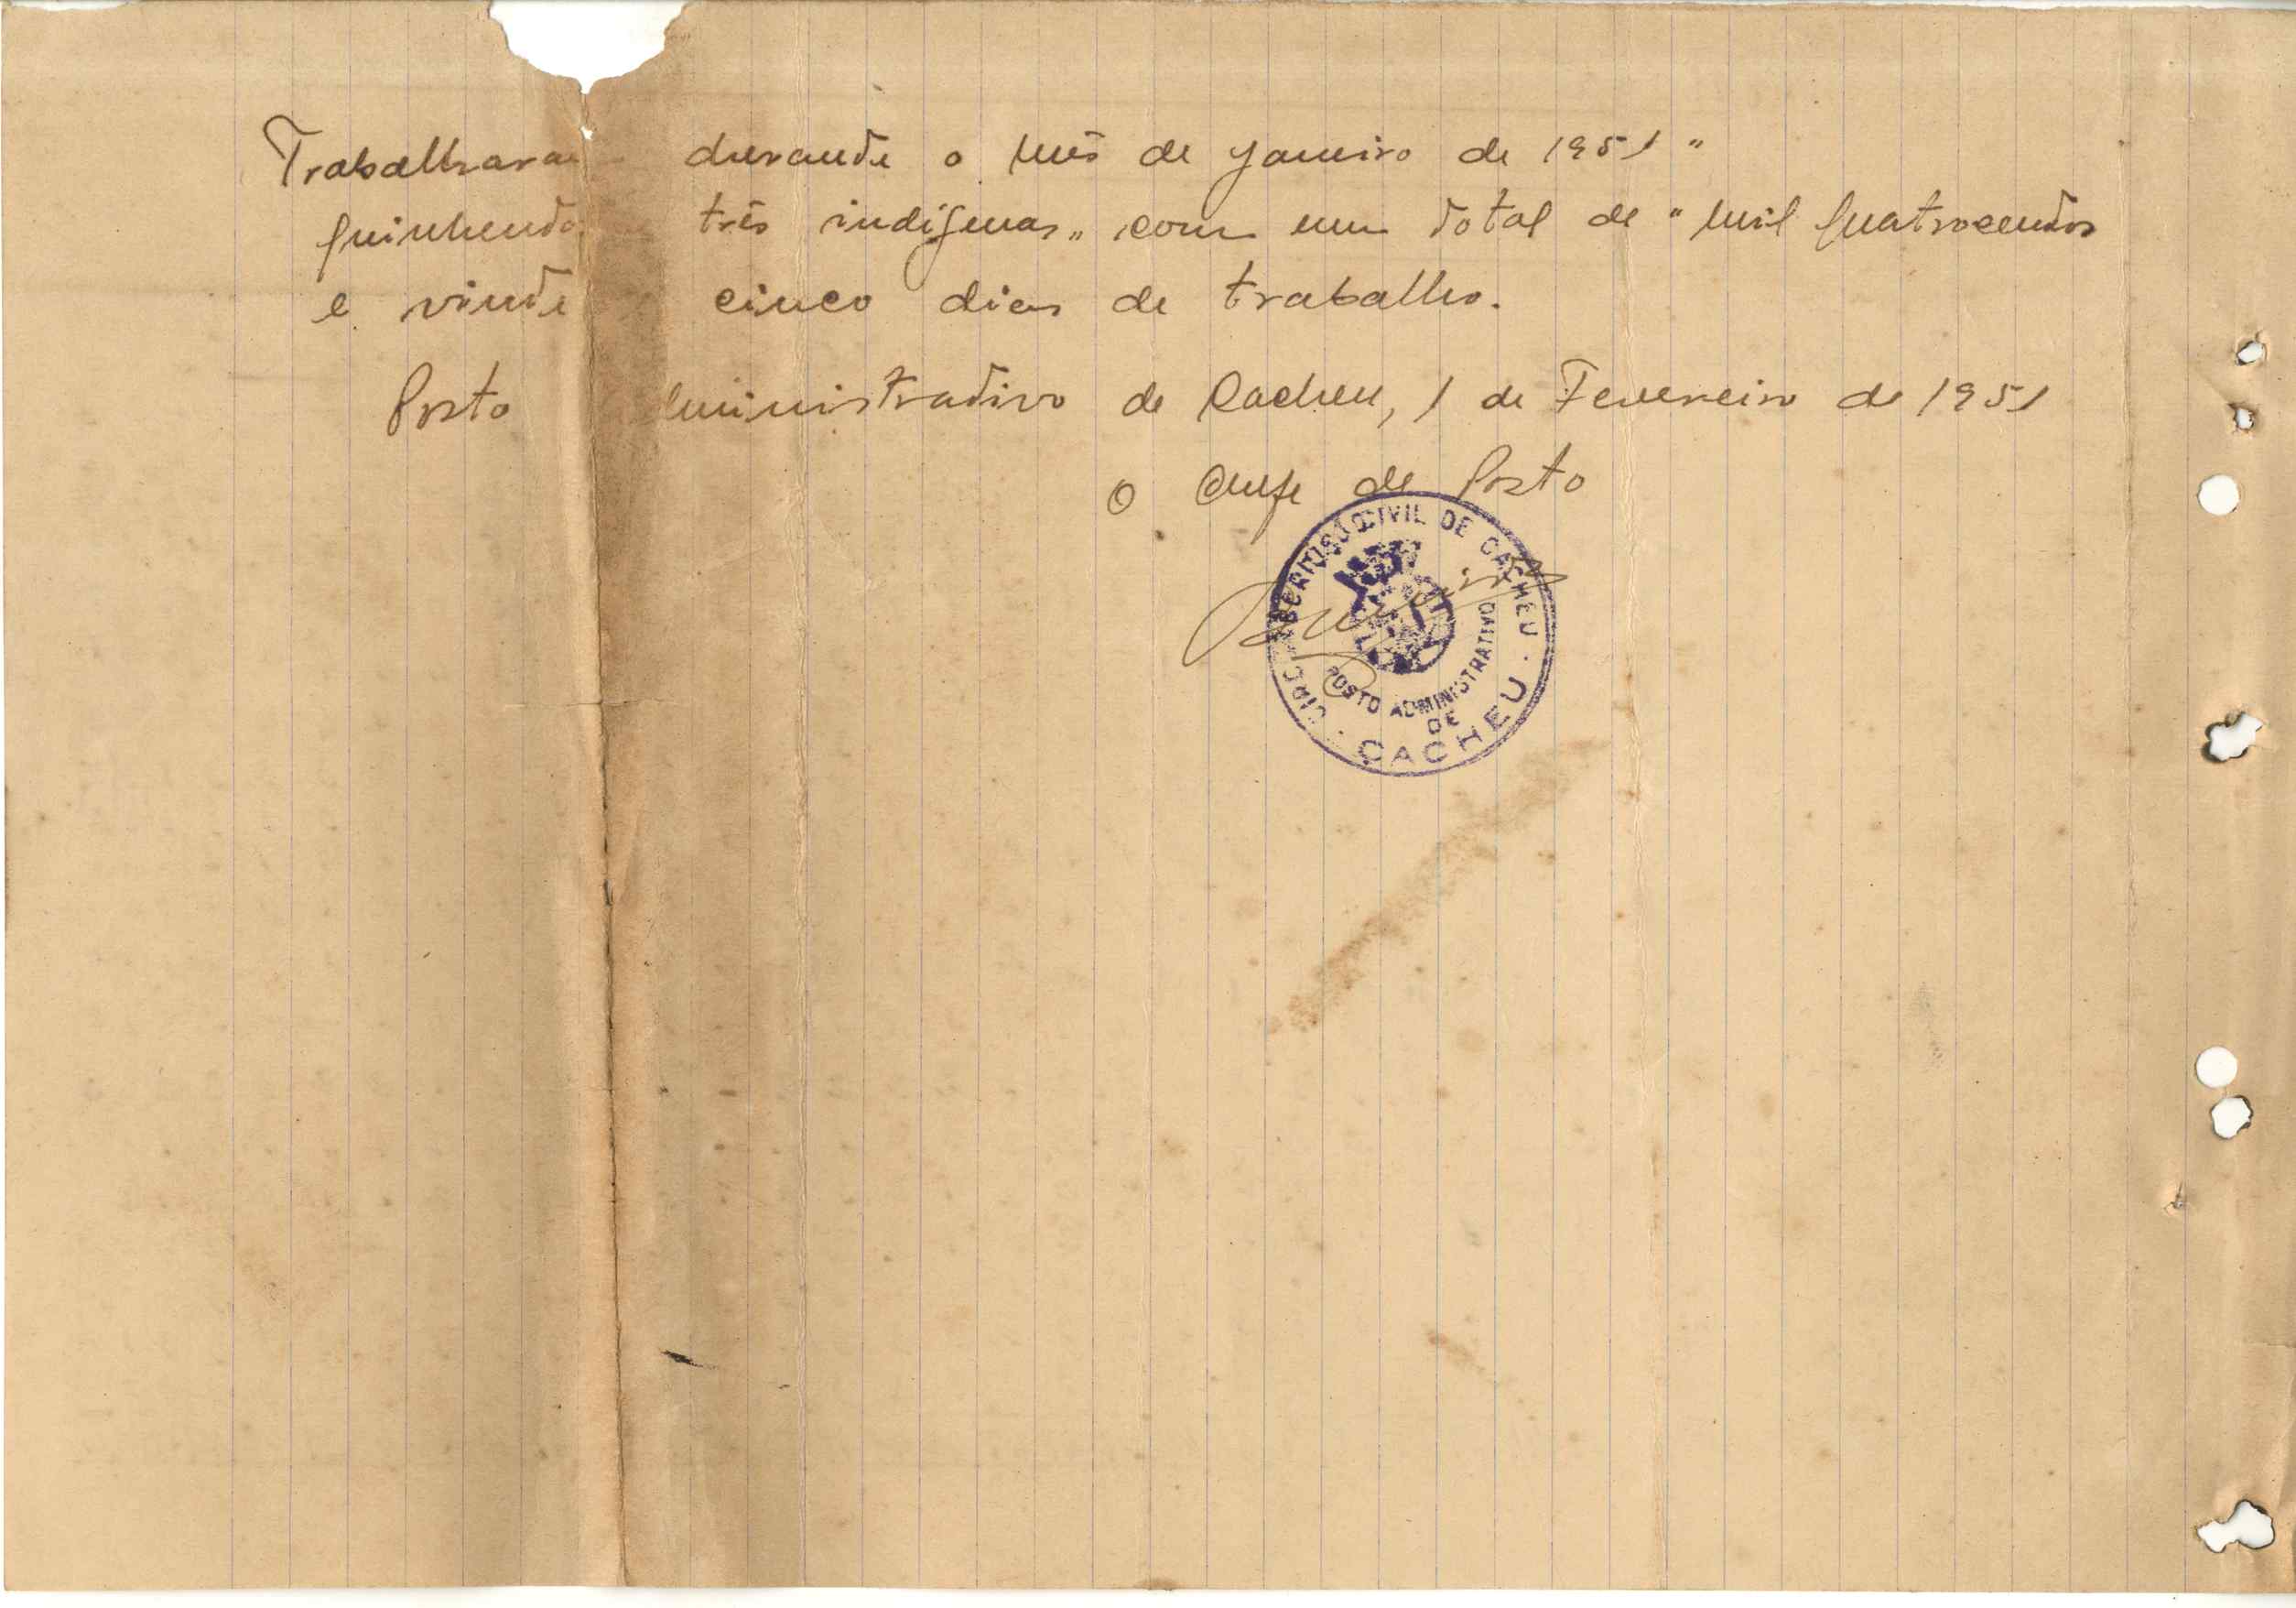 Trabalharam durante o mês de Janeiro de 1951 "
quinhentos três indigenas „ com um total de " mil quatrocentos
e vinte cinco dias de trabalho.
Posto ministrativo de Cacheu, 1 de Fevereiro de 1951
O Chefe de Posto
CIVIL DE CACHEU
POSTO ADMINISTRATIVO
DE
CACHEU